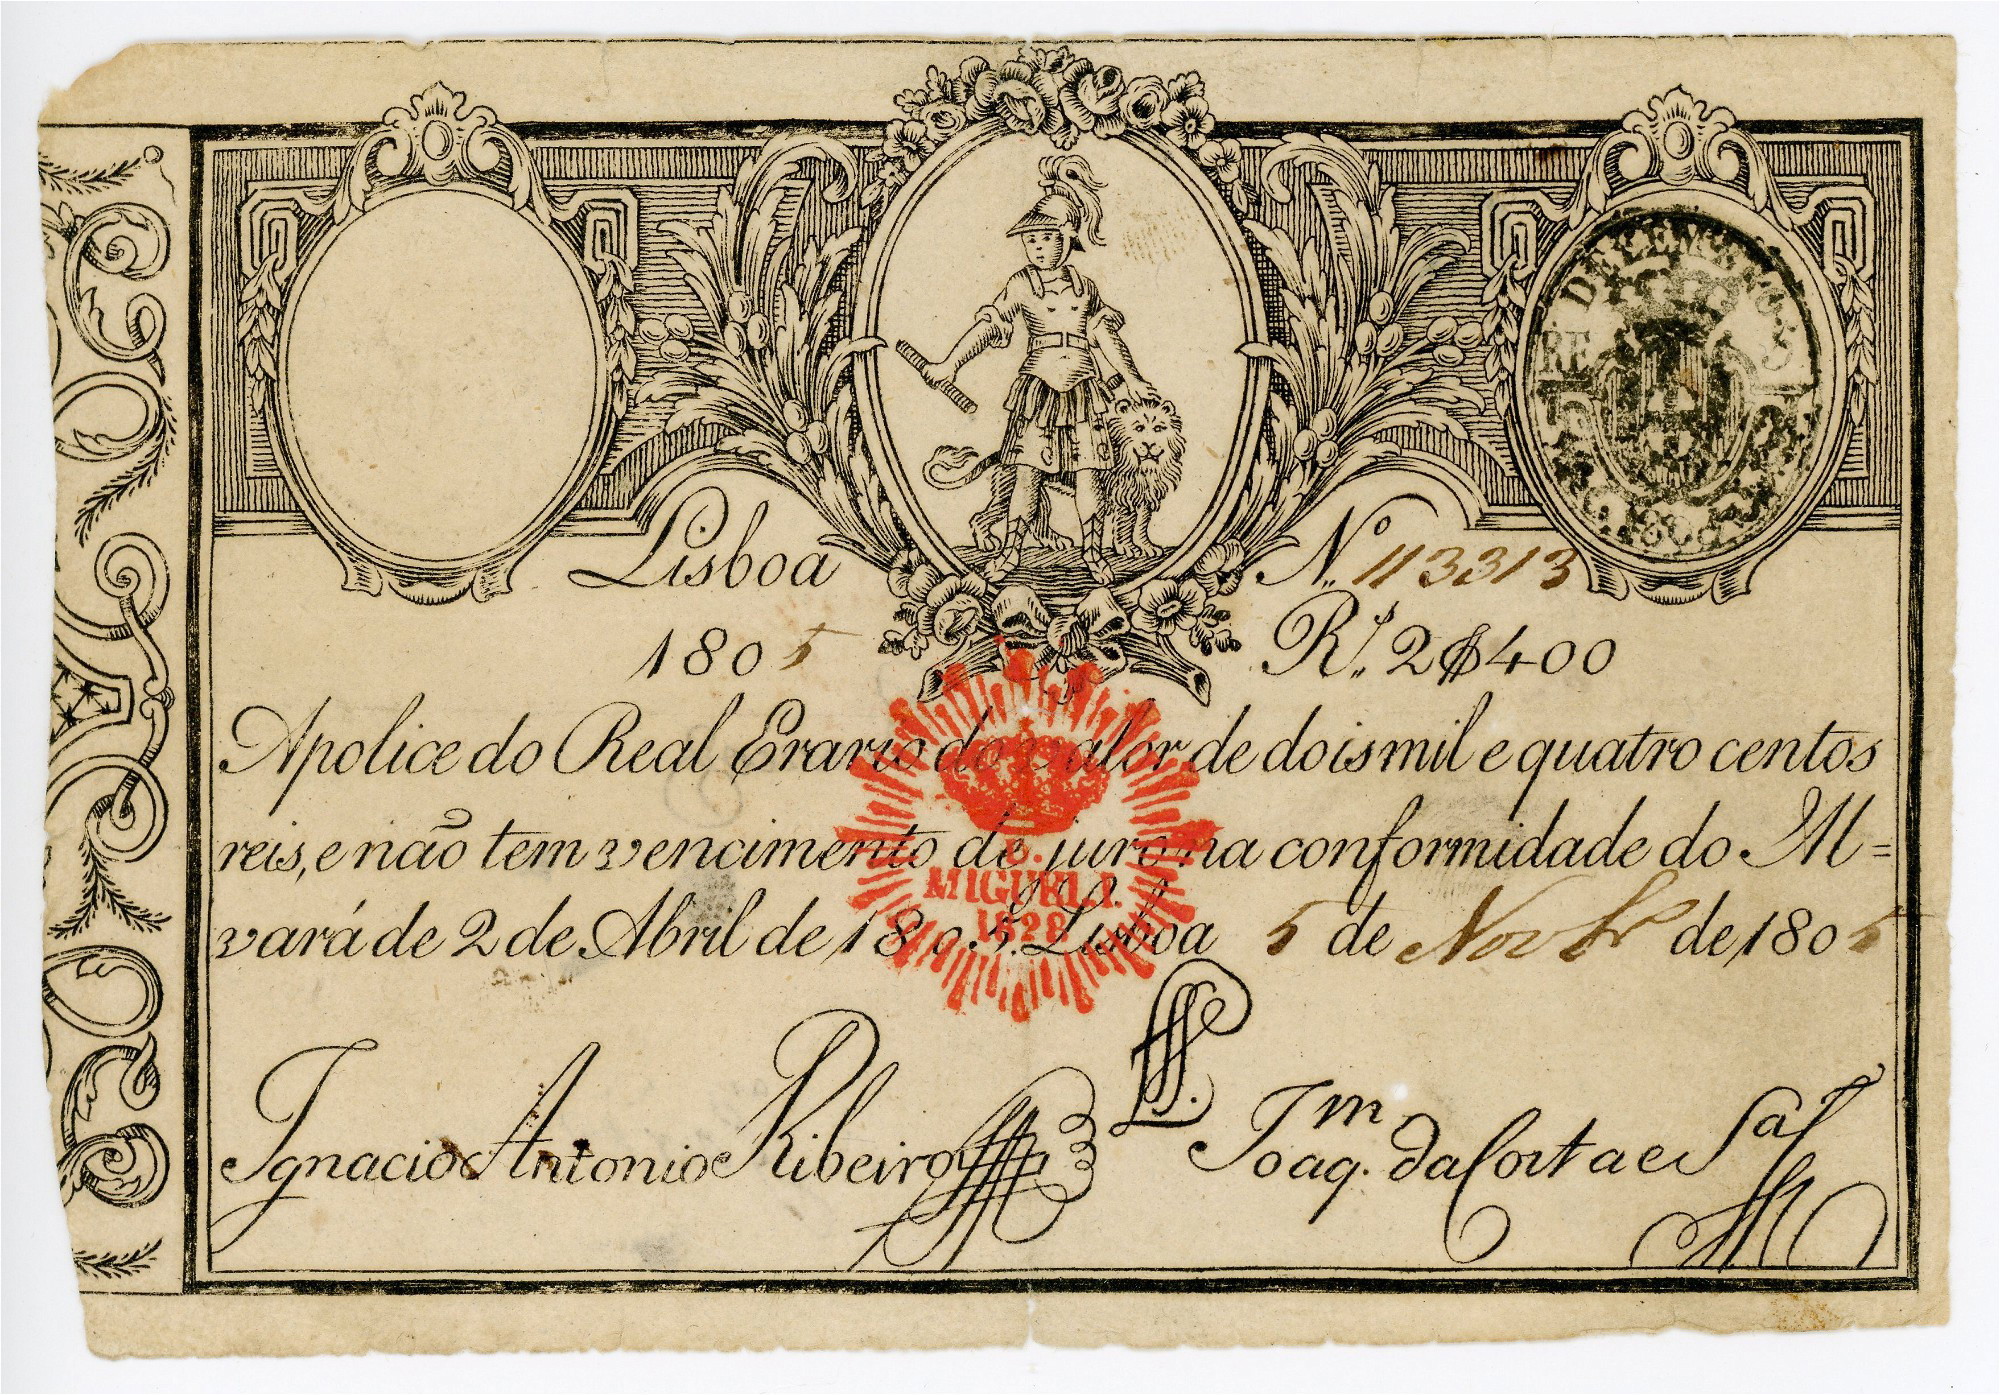 Lisboa
N.º 113313
1805
R.s 2$400
Apolice do Real Erario do valor de dois mil e quatro centos
reis, e não tem vencimento de juro na conformidade do Al=
vará de 2 de Abril de 1805. Lisboa 5 de Novbr de 1805
MIGUEL I.
1828
Ignacio Antonio Ribeiro
Joaq.m da Costa e Sal